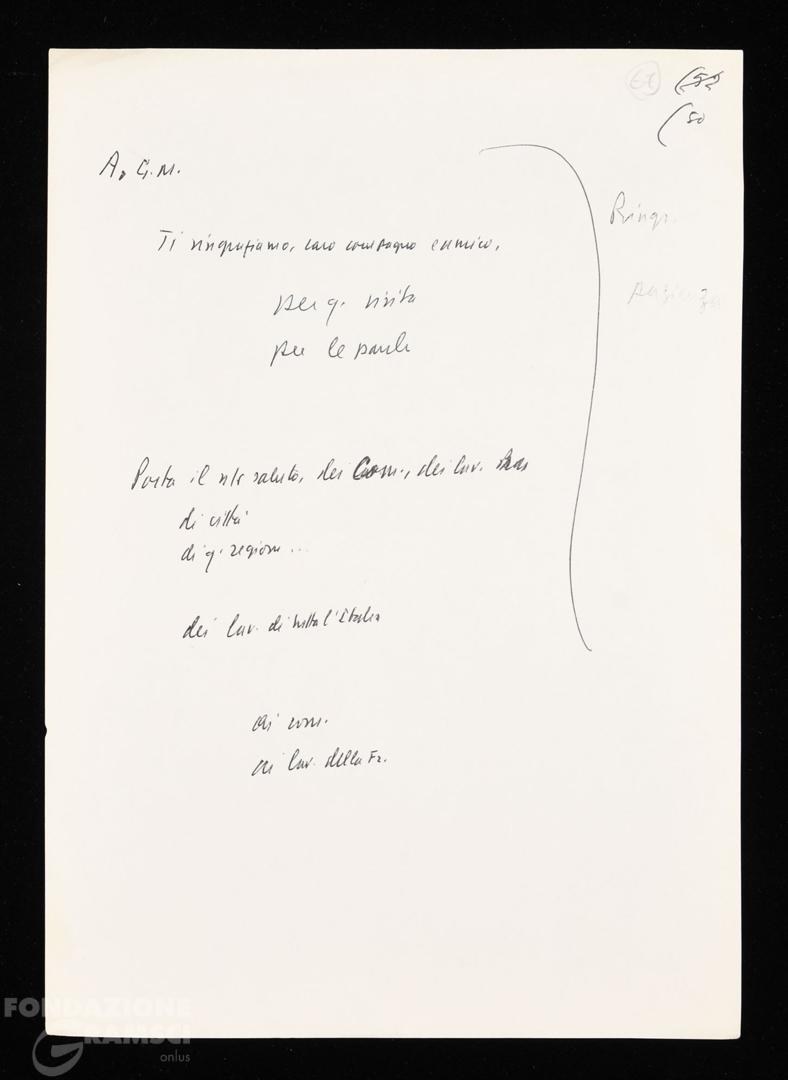 (52
(50
A. G.M.
Ti ringraziamo, caro compagno e amico,
per q. visita
per le parole
Porta il ns saluto, dei Com., dei lav.
di città
di q. regione...
dei lav. di tutta l'Italia
ai com.
ai lav. della Fr.
Ringr.
pazienza
FONDAZIONE
GRAMSCI
onlus